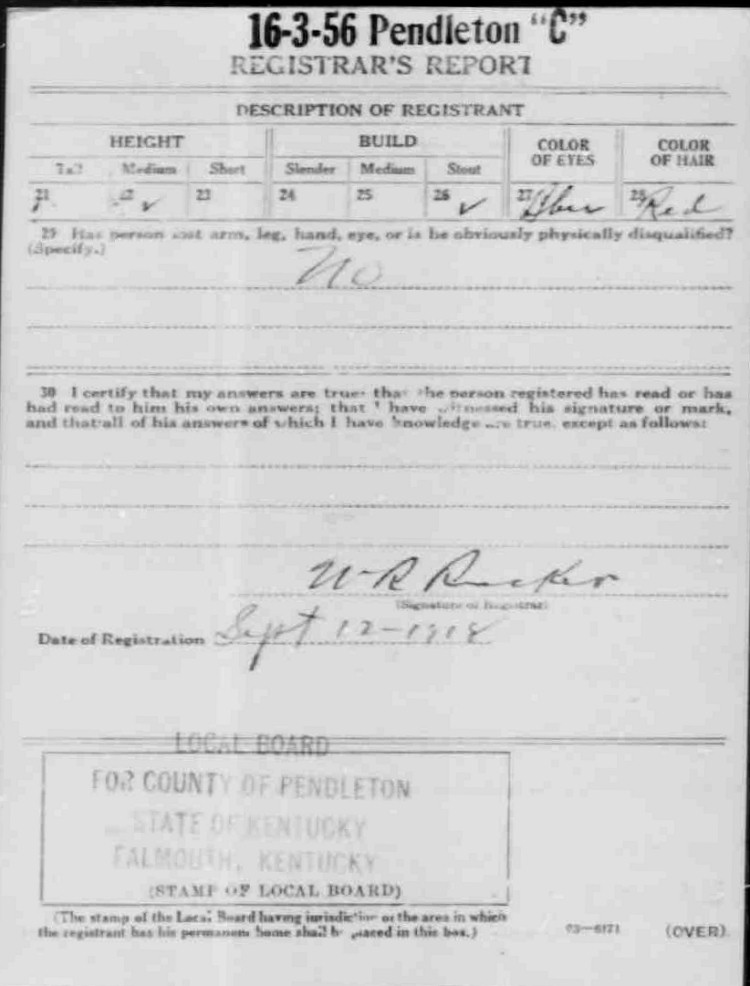 16-3-56 Pendleton "C"
REGISTRAR'S REPORT
DESCRIPTION OF REGISTRANT
HEIGHT BUILD COLOR OF EYES COLOR OF HAIR
Tall Medium Short Slender Medium Stout
21 22 ✓ 23 24 25 26 ✓ 27 Blue 28 Red
29 Has person lost arm, leg, hand, eye, or is he obviously physically disqualified?
(Specify.)
No
30 I certify that my answers are true; that the person registered has read or has
had read to him his own answers; that I have witnessed his signature or mark,
and that all of his answers of which I have knowledge are true, except as follows:
W R Rucker
(Signature of Registrar)
Date of Registration Sept 12-1918
LOCAL BOARD
FOR COUNTY OF PENDLETON
STATE OF KENTUCKY
FALMOUTH, KENTUCKY
(STAMP OF LOCAL BOARD)
(The stamp of the Local Board having jurisdiction of the area in which
the registrant has his permanent home shall be placed in this box.)
03—6171 (OVER)